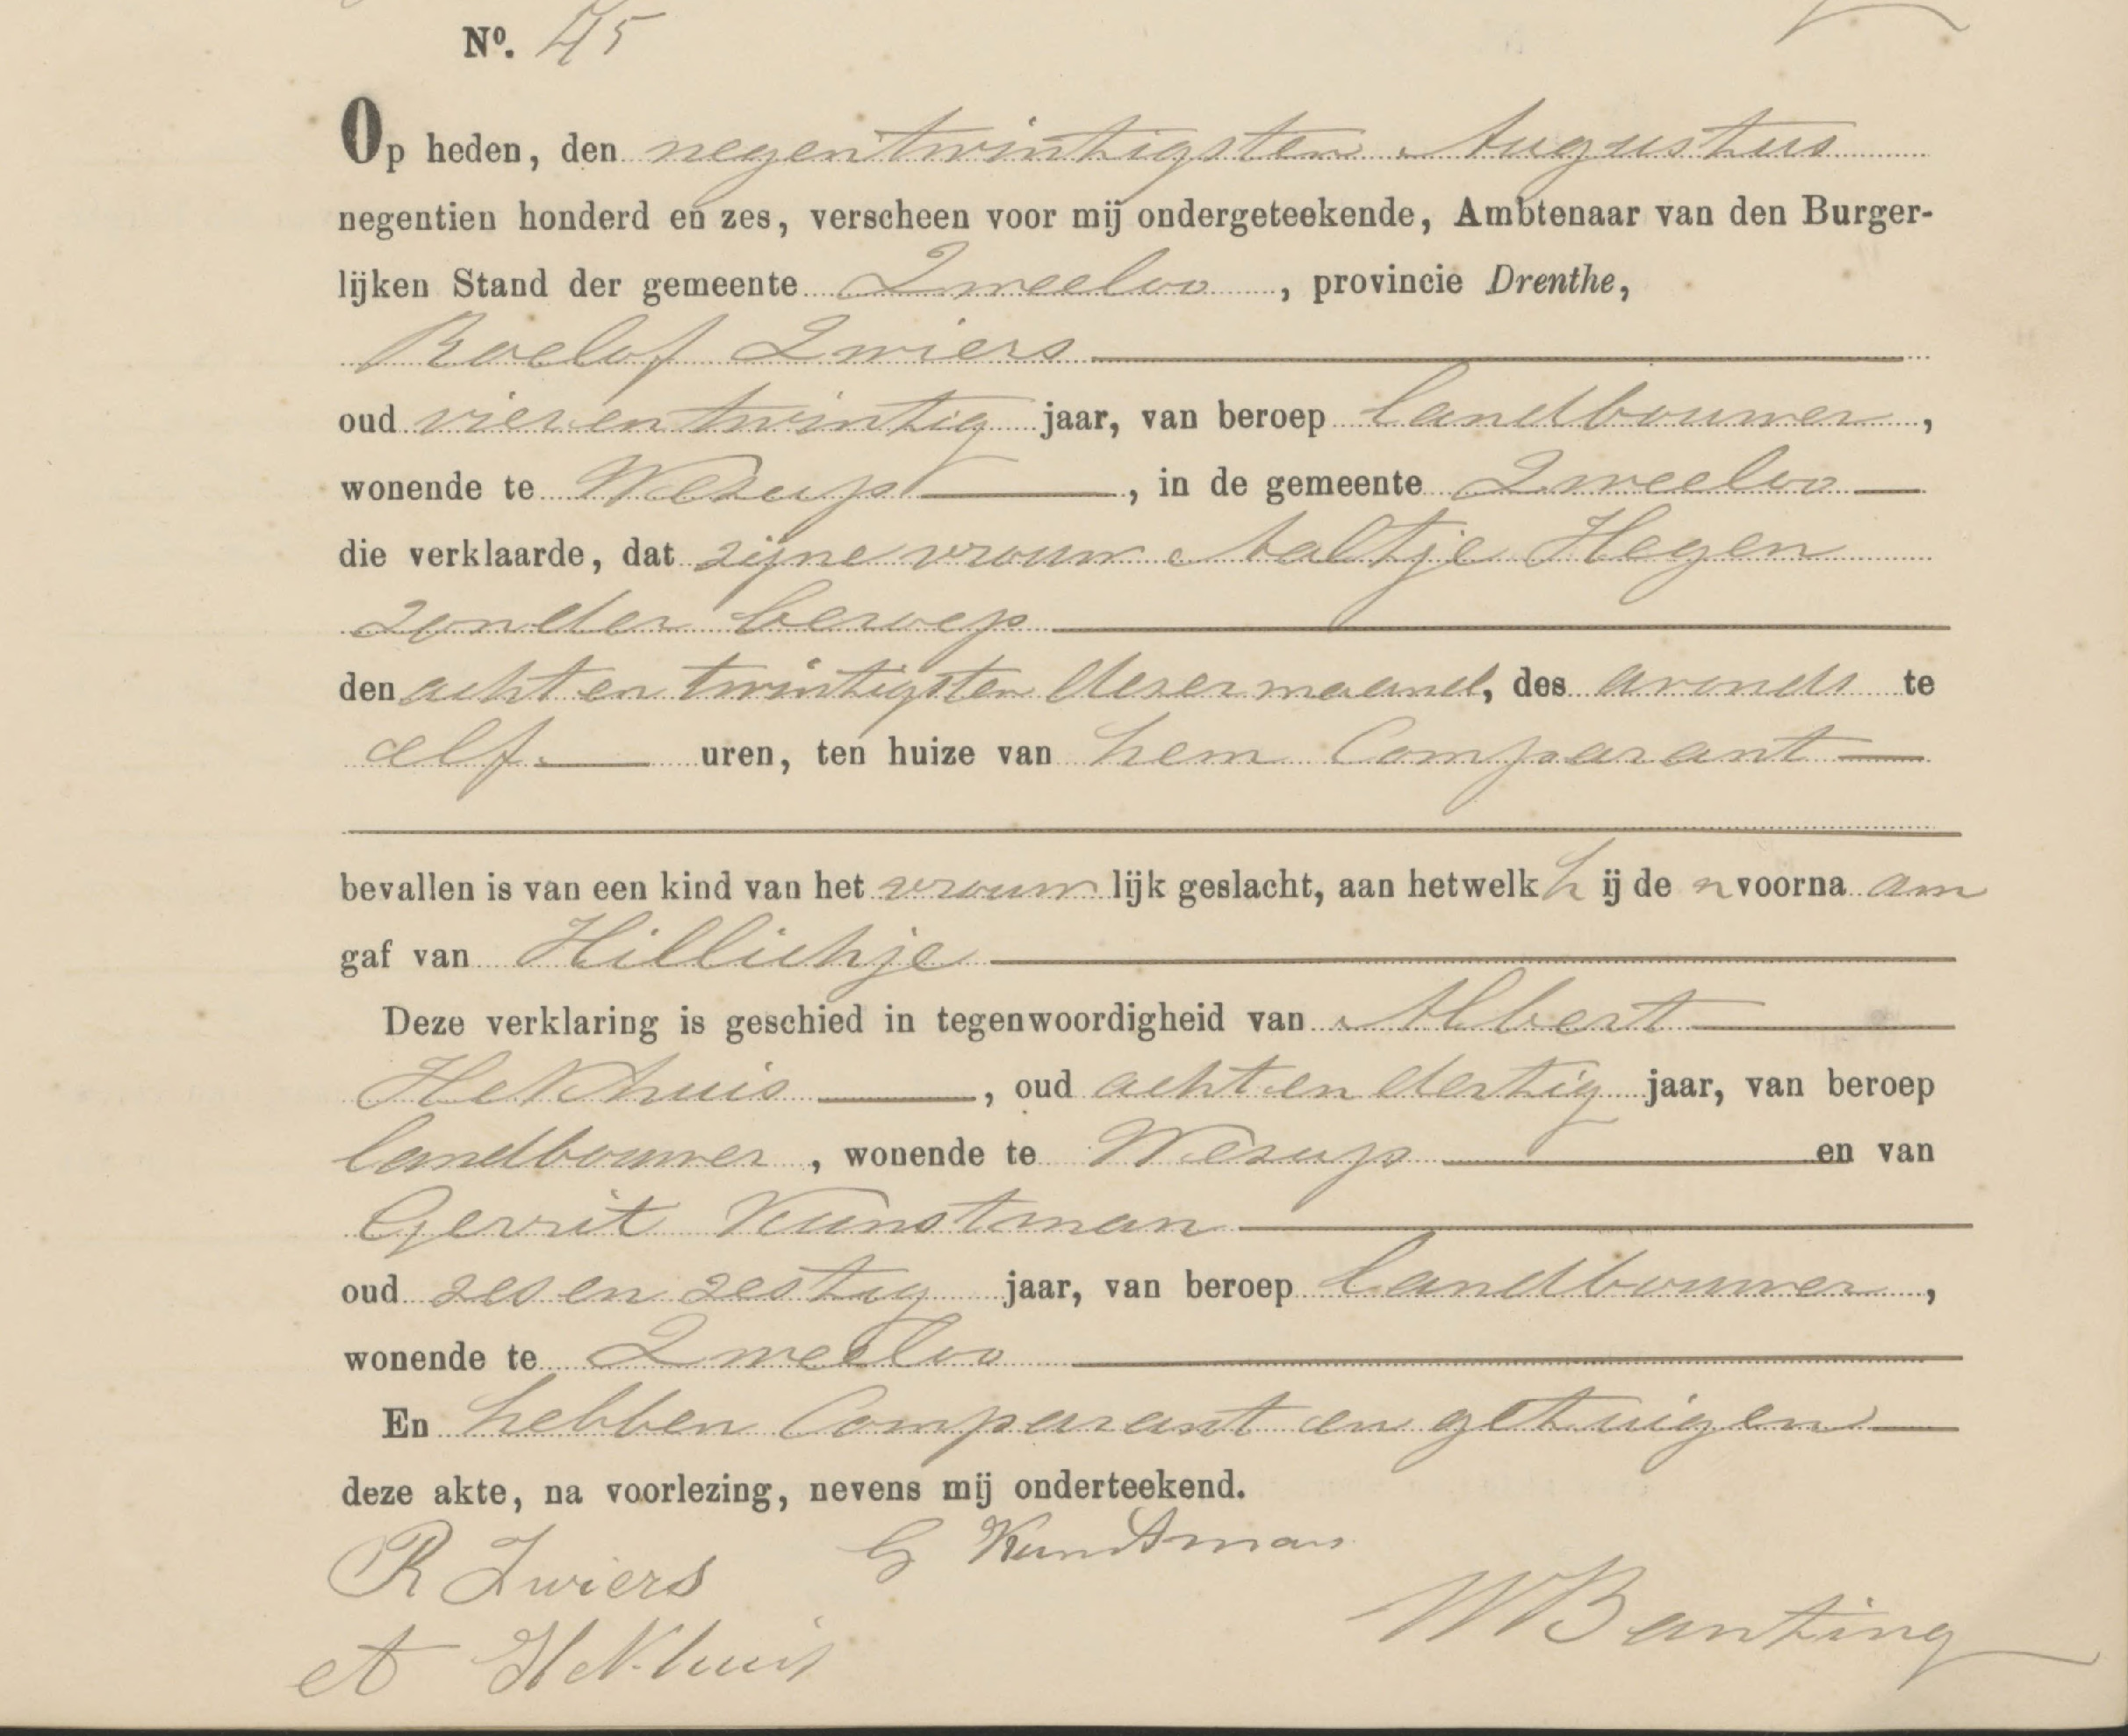 Nº. 45
Op heden, den negentwintigsten Augustus
negentien honderd en zes, verscheen voor mij ondergeteekende, Ambtenaar van den Burger-
lijken Stand der gemeente Zweeloo, provincie Drenthe,
Roelof Zwiers
oud vierentwintig jaar, van beroep landbouwer,
wonende te Wezup, in de gemeente Zweeloo
die verklaarde, dat zijne vrouw Aaltje Hegen
zonder beroep
den achtentwintigsten dezer maand, des avonds te
elf uren, ten huize van hem Comparant
bevallen is van een kind van het vrouwlijk geslacht, aan hetwelk hij den voornaam
gaf van Hillichje
Deze verklaring is geschied in tegenwoordigheid van Albert
Hekhuis, oud achtendertig jaar, van beroep
landbouwer, wonende te Wezup en van
Gerrit Kunstman
oud zesenzestig jaar, van beroep landbouwer,
wonende te Zweeloo
En hebben Comparant en getuigen
deze akte, na voorlezing, nevens mij onderteekend.
R Zwiers G Kunstman
A Hekhuis WBanting